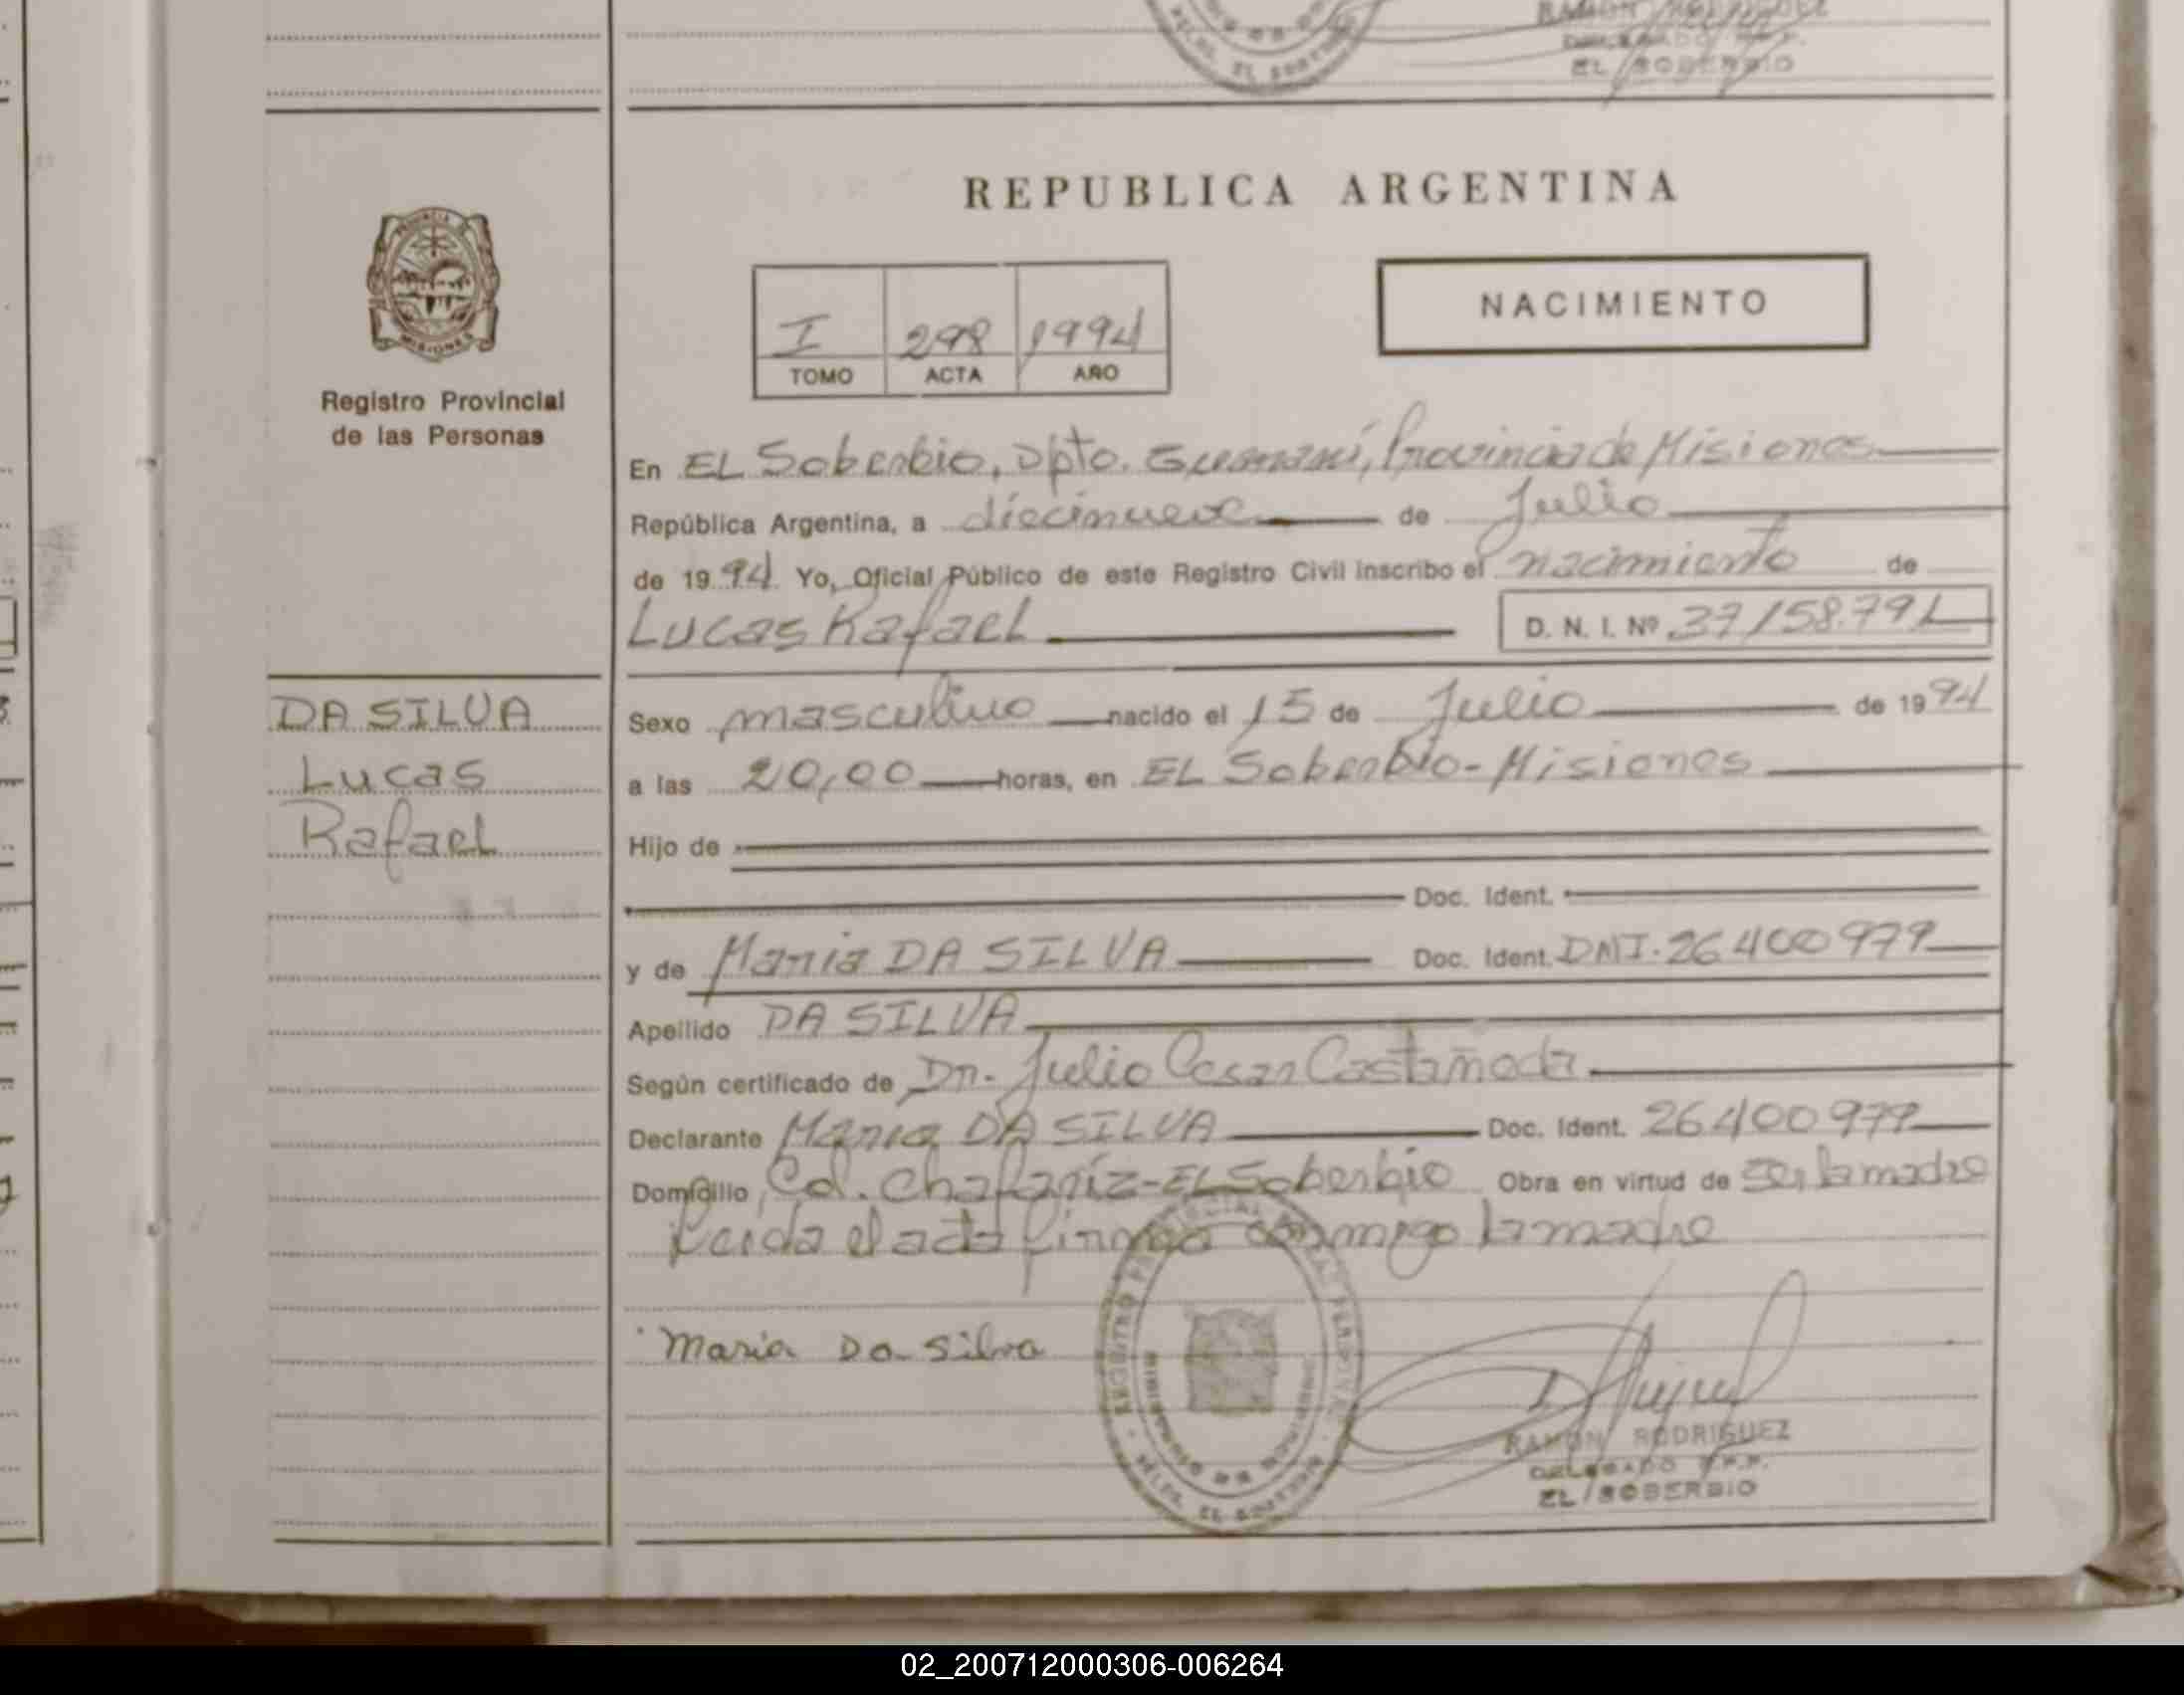 EL SOBERBIO
REPUBLICA ARGENTINA
MISIONES
Registro Provincial
de las Personas
NACIMIENTO
I 298 1994
TOMO ACTA AÑO
En EL Soberbio, Dpto. Guaraní, Provincia de Misiones
República Argentina, a diecinueve de Julio
de 1994 Yo, Oficial Público de este Registro Civil inscribo el nacimiento de
Lucas Rafael D. N. I. Nº 37158.791
DA SILVA
Lucas
Rafael
Sexo masculino nacido el 15 de Julio de 1994
a las 20,00 horas, en EL Soberbio-Misiones
Hijo de
Doc. Ident.
y de Maria DA SILVA Doc. Ident. DNI. 26400979
Apellido DA SILVA
Según certificado de Dr. Julio Cesar Castañeda
Declarante Maria DA SILVA Doc. Ident. 26400979
Domicilio Col. Chafaríz-EL Soberbio Obra en virtud de ser la madre
Leida el acta firma conmigo la madre
Maria Da Silva
RAMON RODRIGUEZ
DELEGADO R.P.P.
EL SOBERBIO
02_200712000306-006264